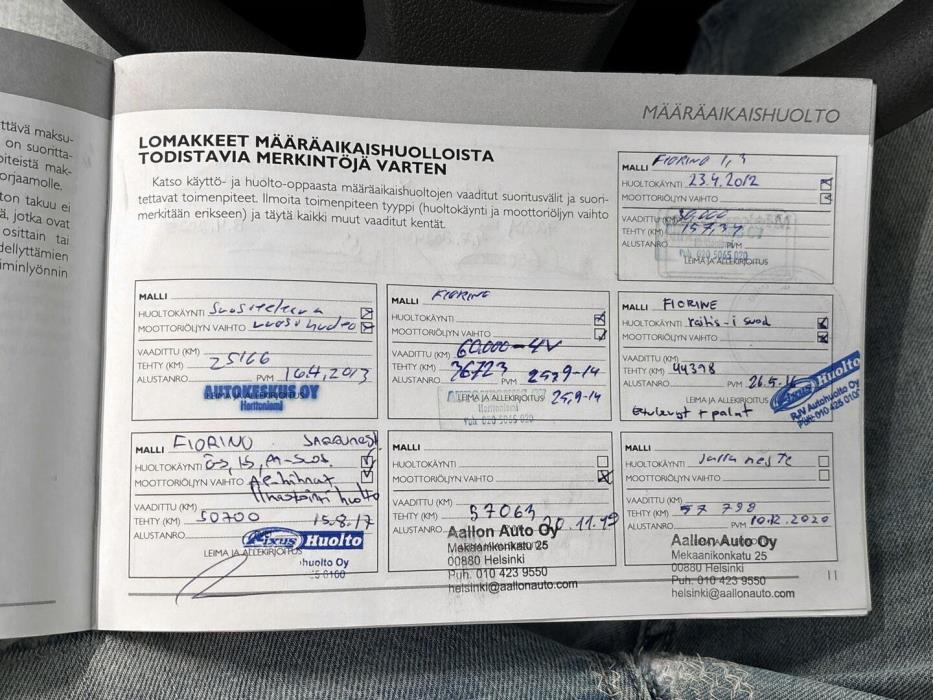 ttävä maksu-
on suoritta-
oiteistä mak-
orjaamolle.
ton takuu ei
ä, jotka ovat
osittain tai
dellyttämien
iminlyönnin
MÄÄRÄAIKAISHUOLTO
LOMAKKEET MÄÄRÄAIKAISHUOLLOISTA
TODISTAVIA MERKINTÖJÄ VARTEN
Katso käyttö- ja huolto-oppaasta määräaikaishuoltojen vaaditut suoritusvälit ja suori-
tettavat toimenpiteet. Ilmoita toimenpiteen tyyppi (huoltokäynti ja moottoriöljyn vaihto
merkitään erikseen) ja täytä kaikki muut vaaditut kentät.
MALLI FIORINO 1,3
HUOLTOKÄYNTI 23.4.2012
MOOTTORIÖLJYN VAIHTO
VAADITTU (KM) 30.000
TEHTY (KM) 15734
ALUSTANRO PVM
Puh. 020 5065 020
LEIMA JA ALLEKIRJOITUS
MALLI
HUOLTOKÄYNTI
MOOTTORIÖLJYN VAIHTO vuosihuolto
VAADITTU (KM)
TEHTY (KM) 25166
ALUSTANRO PVM 16.4.2013
LEIMA JA ALLEKIRJOITUS
AUTOKESKUS OY
Herttoniemi
MALLI FIORINO
HUOLTOKÄYNTI
MOOTTORIÖLJYN VAIHTO
VAADITTU (KM) 60.000-4V
TEHTY (KM) 36723
ALUSTANRO PVM 25.9-14
LEIMA JA ALLEKIRJOITUS 25,9-14
Herttoniemi
Puh. 020 5065 020
MALLI FIORINE
HUOLTOKÄYNTI
MOOTTORIÖLJYN VAIHTO
VAADITTU (KM)
TEHTY (KM) 44398
ALUSTANRO PVM 26.5.16
LEIMA JA ALLEKIRJOITUS
Fixus Huolto
RJV Autohuolto Oy
Puh. 010 425 0100
+ palat
MALLI FIORINO
HUOLTOKÄYNTI
MOOTTORIÖLJYN VAIHTO
VAADITTU (KM)
TEHTY (KM) 50700 15.8.17
ALUSTANRO
LEIMA JA ALLEKIRJOITUS
Fixus Huolto
huolto Oy
MALLI
HUOLTOKÄYNTI
MOOTTORIÖLJYN VAIHTO
VAADITTU (KM)
TEHTY (KM) 57063
ALUSTANRO 20.11.19
Aallon Auto Oy
Mekaanikonkatu 25
00880 Helsinki
Puh. 010 423 9550
helsinki@aallonauto.com
MALLI
HUOLTOKÄYNTI Jarruneste
MOOTTORIÖLJYN VAIHTO
VAADITTU (KM)
TEHTY (KM) 57 798
ALUSTANRO PVM 10.12.2020
Aallon Auto Oy
Mekaanikonkatu 25
00880 Helsinki
Puh. 010 423 9550
helsinki@aallonauto.com
11